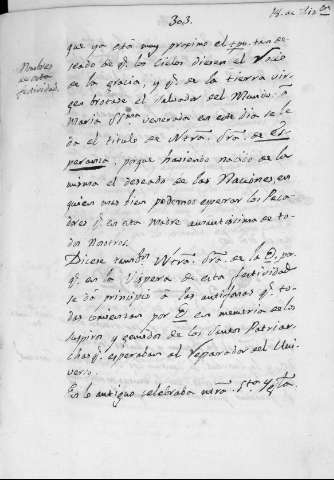 303.
18. de Diz.re
Nombres
de esta
festividad.
que ya está muy proximo el tpo. tan de-
seado de q.e los Cielos diesen el Rocio
de la gracia, y q.e de la tierra vir-
gen brotase el Salvador del Mundo.
Maria SSma venerada en este dia se le
da el titulo de Ntrã. Srã. de Es-
peranza, porque haviendo nacido de la
misma el deseado de las Naciones, en
quien mas bien podemos esperar los Peca-
dores q.e en esta Madre amantisima de to-
dos nosotros.
Dicese tambn. Ntrã. Srã. de la O, por-
q.e en la Vispera de esta festividad
se dá principio á las antifonas q.e to-
das comienzan por O, en memoria de los
suspiros, y gemidos de los Santos Patriar-
chas q.e esperaban al reparador del Uni-
verso.
En lo antiguo celebraba ntrã. Sta. Ygla.